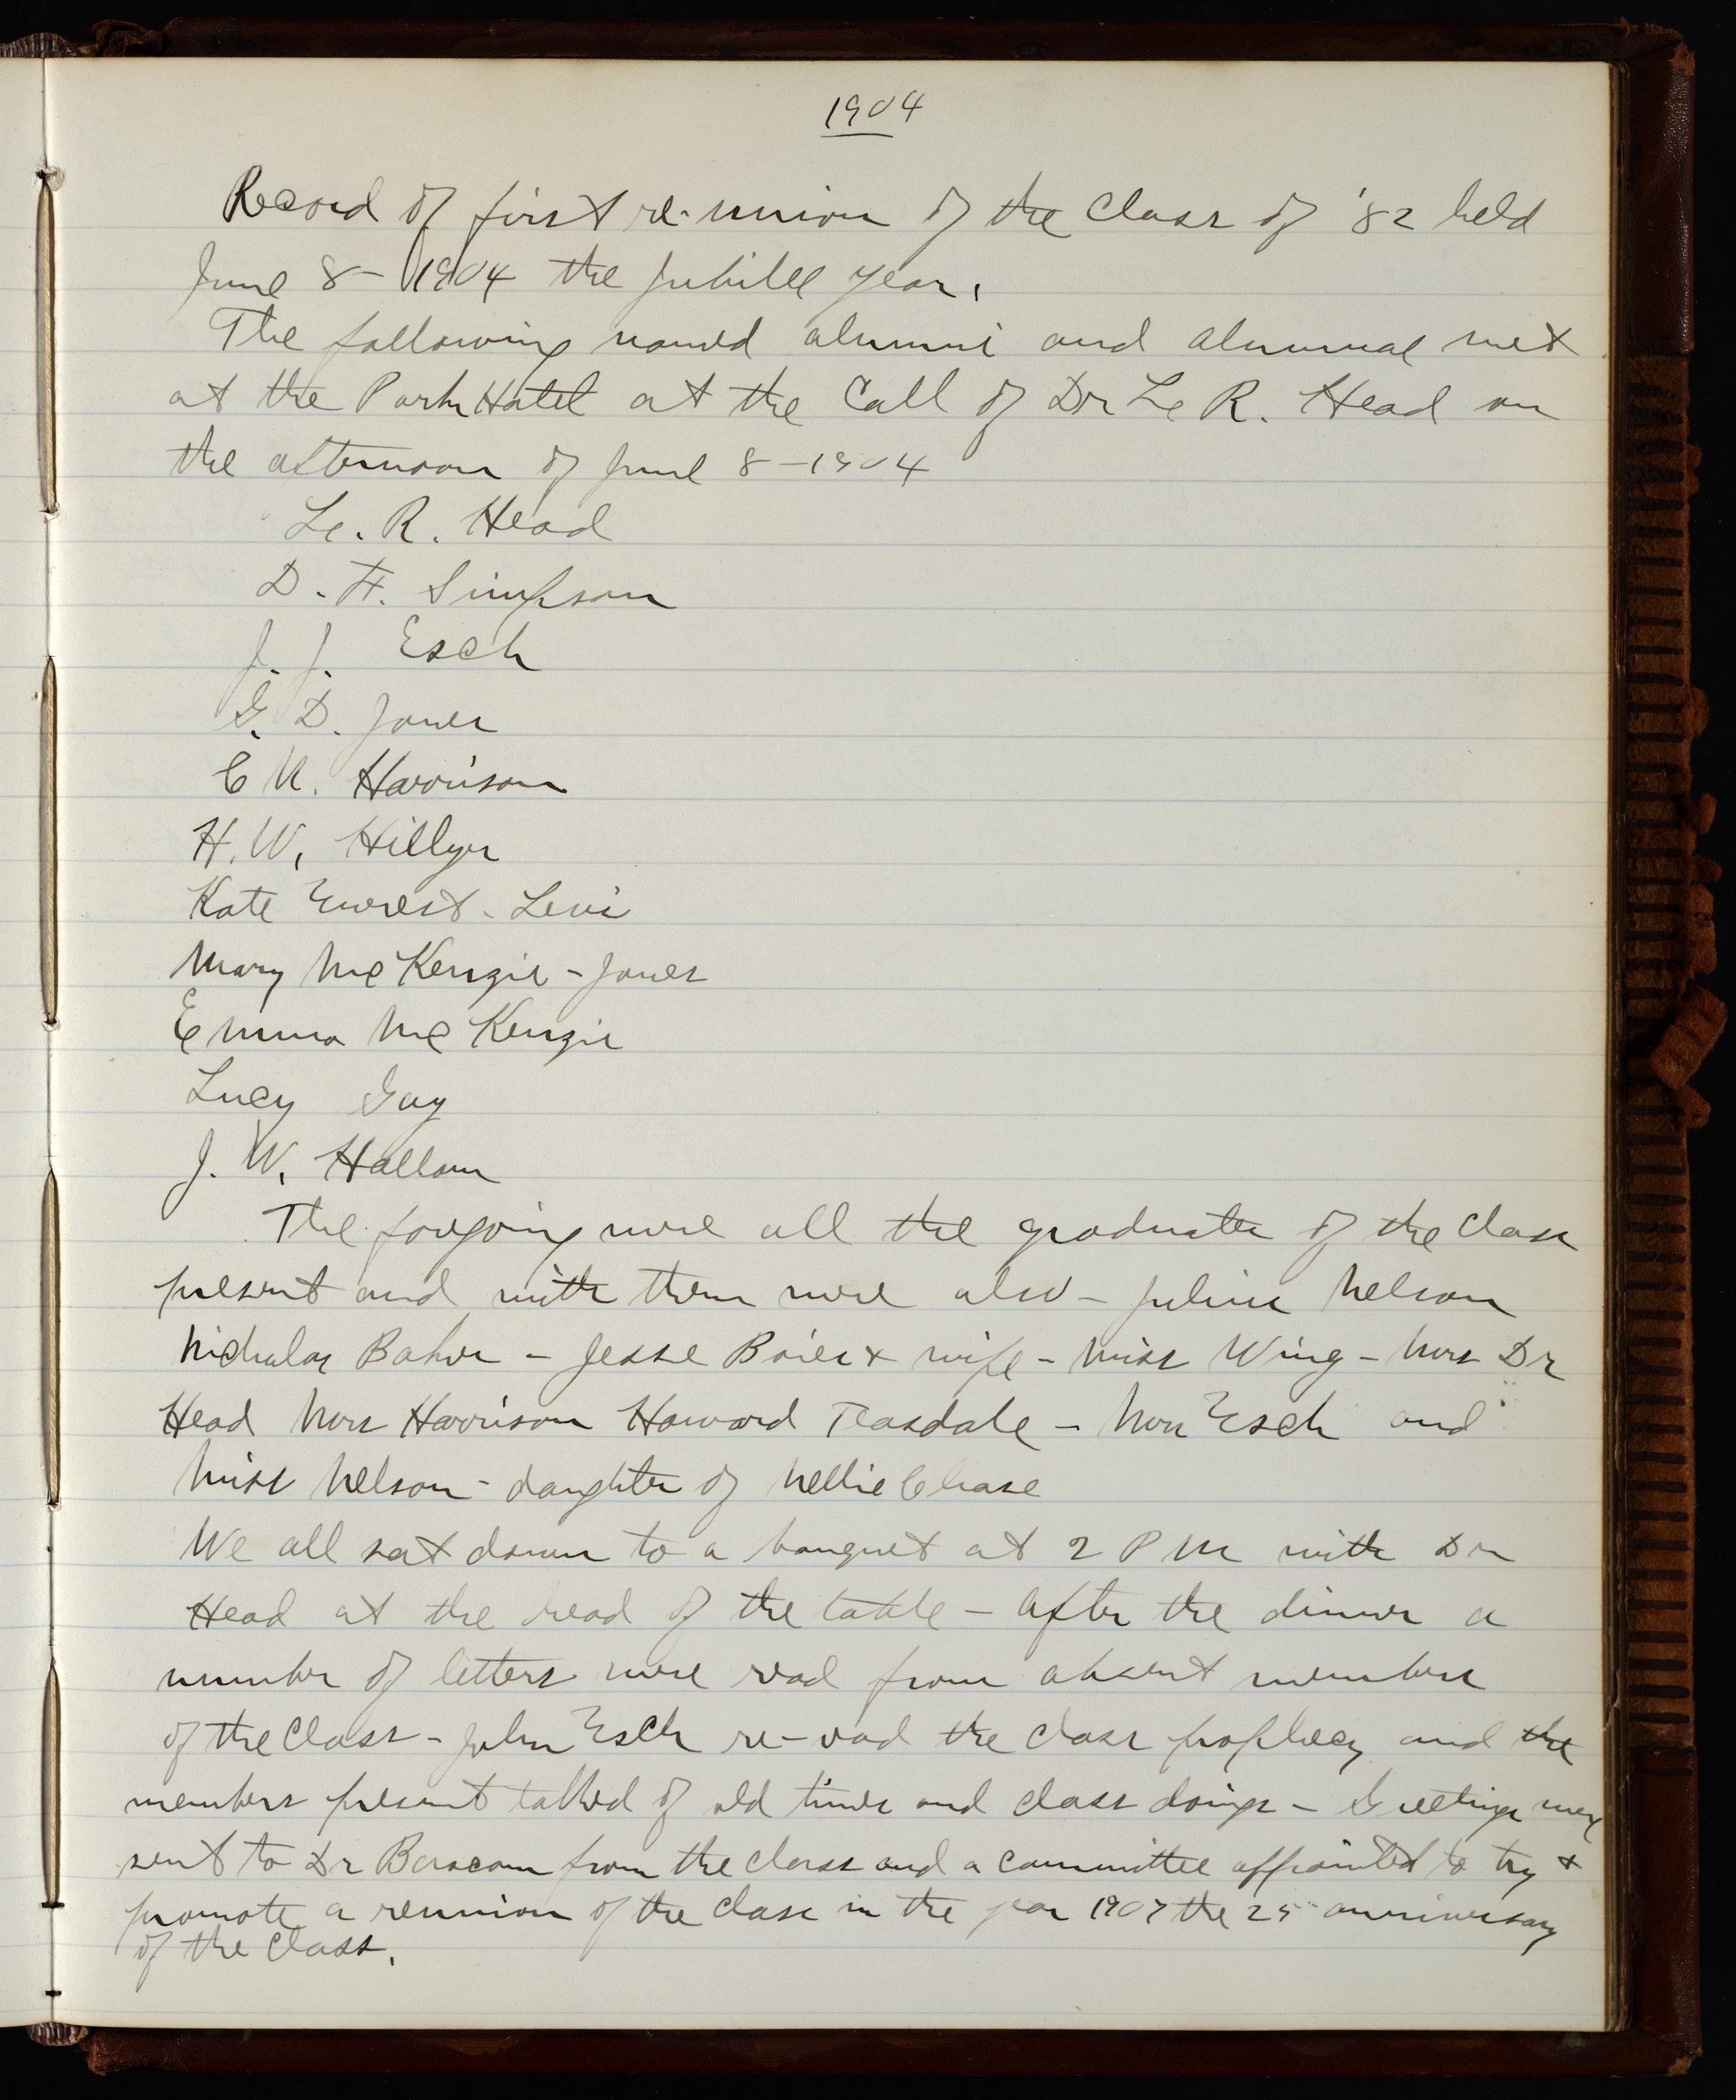 1904
Record of first re-union of the Class of '82 held
June 8 - 1904 the Jubilee year.
The following named alumni and alumnae met
at the Park Hotel at the Call of Dr Le R. Head on
the afternoon of June 8 - 1904
Le. R. Head
D. F. Simpson
J. J. Esch
G. D. Jones
C N. Harrison
H. W. Hillyer
Kate Everest - Levi
Mary McKenzie - Jones
Emma McKenzie
Lucy Gay
J. W. Hallam
The forgoing were all the graduates of the Class
present and with them were also - Julius Nelson
Nicholas Baker - Jesse Boies + wife - Miss Wing - Mrs Dr
Head Mrs Harrison Howard Teasdale - Mrs Esch and
Miss Nelson - daughter of Nellie Chase
We all sat down to a banquet at 2 P M with Dr
Head at the head of the table - After the dinner a
number of letters were read from absent members
of the Class - John Esch re-read the Class prophecy and the
members present talked of old times and class doings - Greetings were
sent to Dr Bascom from the class and a committee appointed to try +
promote a reunion of the Class in the year 1907 the 25" anniversary
of the Class.